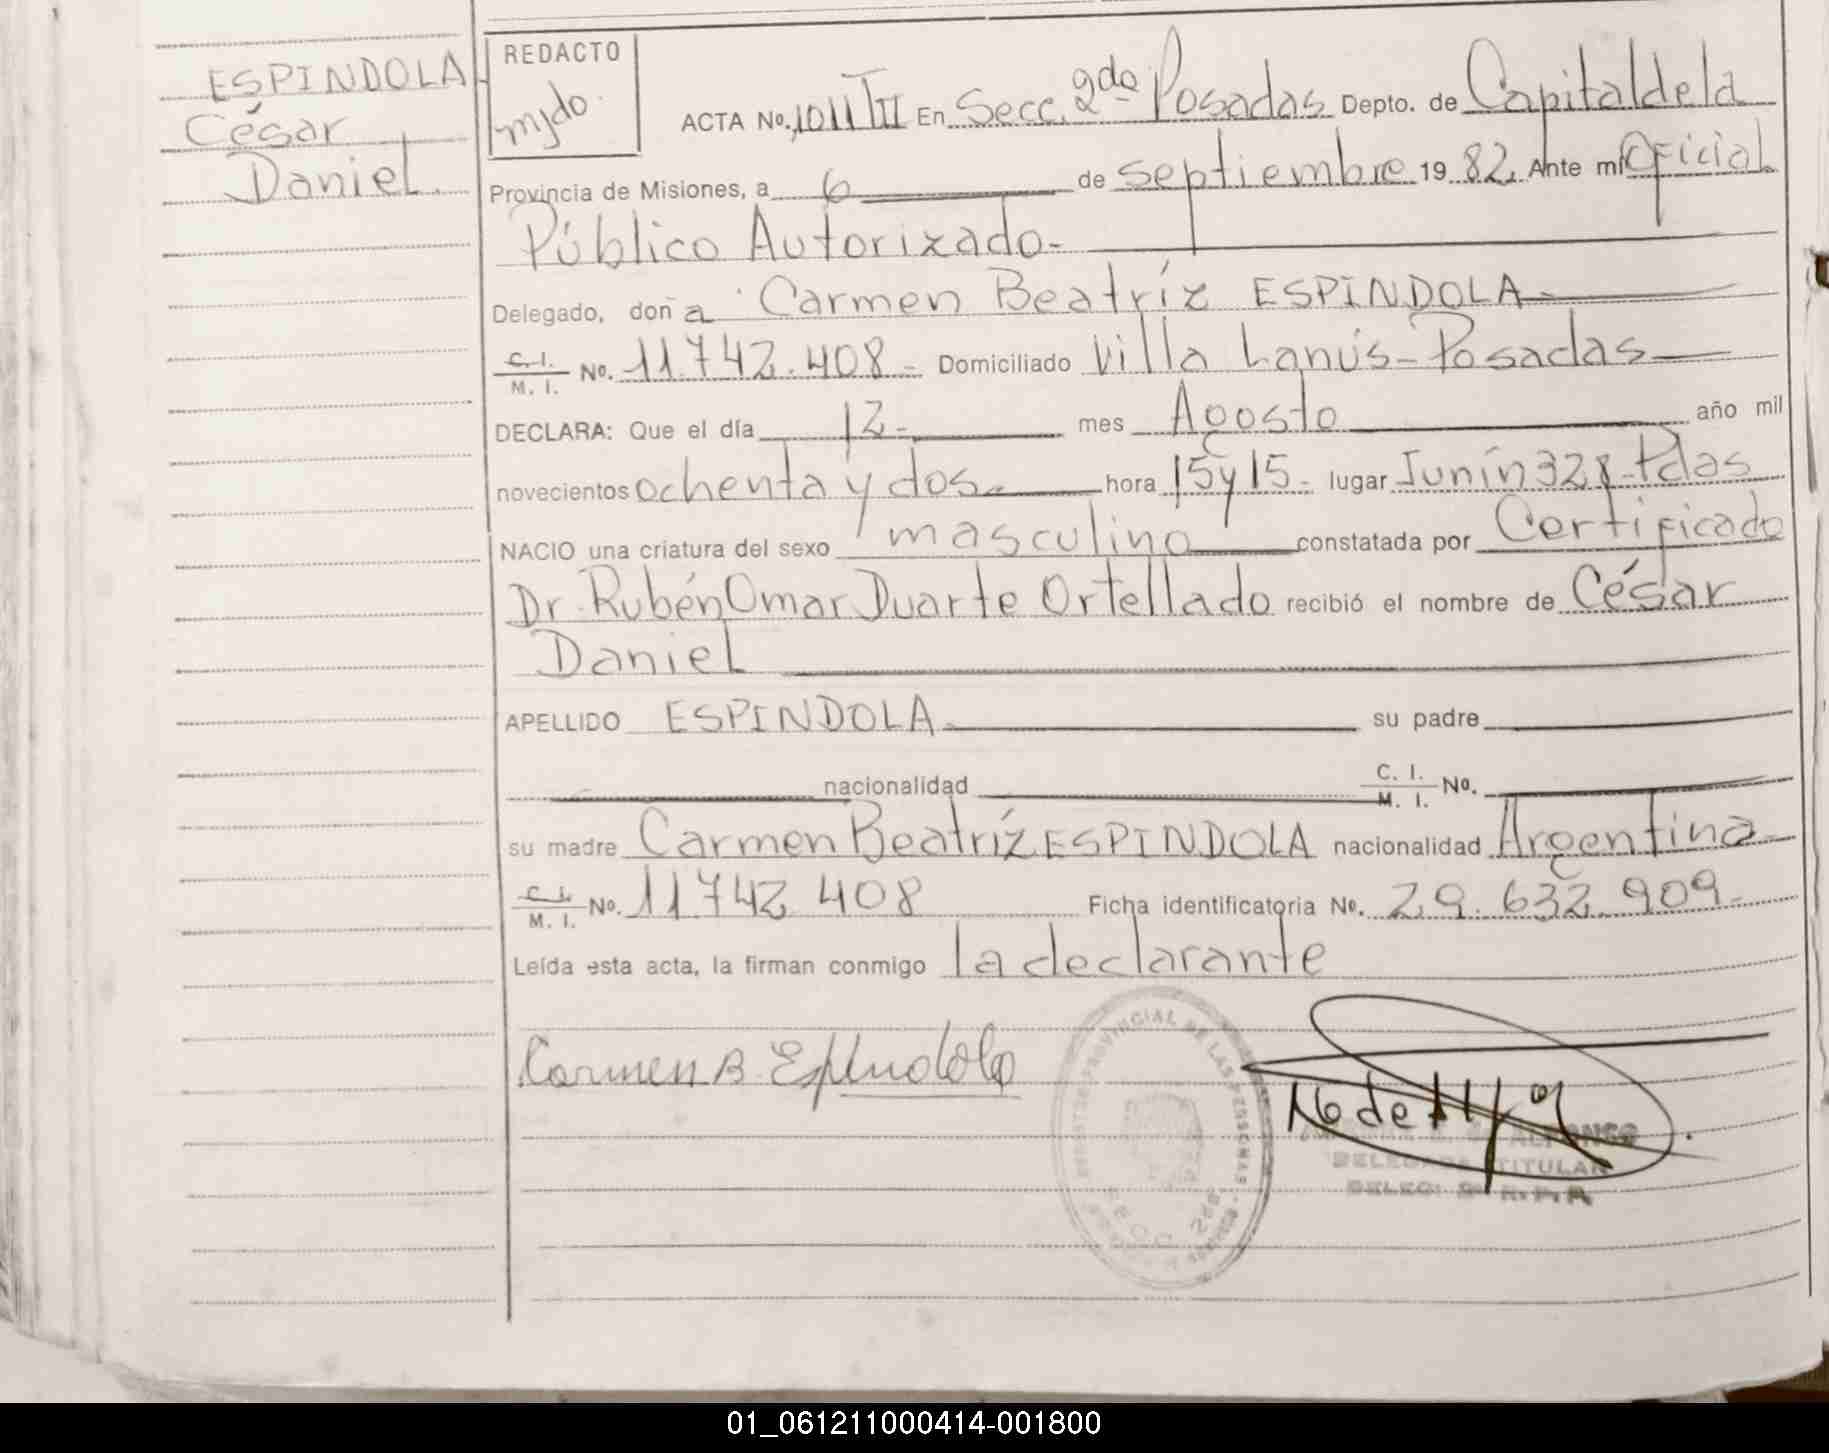 ESPINDOLA
César
Daniel
REDACTO
mydo.
ACTA No. 1011 TII En Secc. 2da Posadas Depto. de Capital de la
Provincia de Misiones, a 6 de septiembre 19 82. Ante mí Oficial
Público Autorizado-
Delegado, don a Carmen Beatríz ESPINDOLA-
C. I. / M. I. No. 11.742.408- Domiciliado Villa Lanús-Posadas
DECLARA: Que el día 12- mes Agosto año mil
novecientos ochenta y dos- hora 15 y 15- lugar Junín 328-Pdas
NACIO una criatura del sexo masculino constatada por Certificado
Dr. Rubén Omar Duarte Ortellado recibió el nombre de César
Daniel
APELLIDO ESPINDOLA- su padre
nacionalidad C. I. / M. I. No.
su madre Carmen Beatríz ESPINDOLA nacionalidad Argentina-
C. I. / M. I. No. 11.742.408 Ficha identificatoria No. 29.632.909-
Leída esta acta, la firman conmigo la declarante
Carmen B. Espindola
PROVINCIAL DE LAS PERSONAS
SECC. 2da
TITULAR